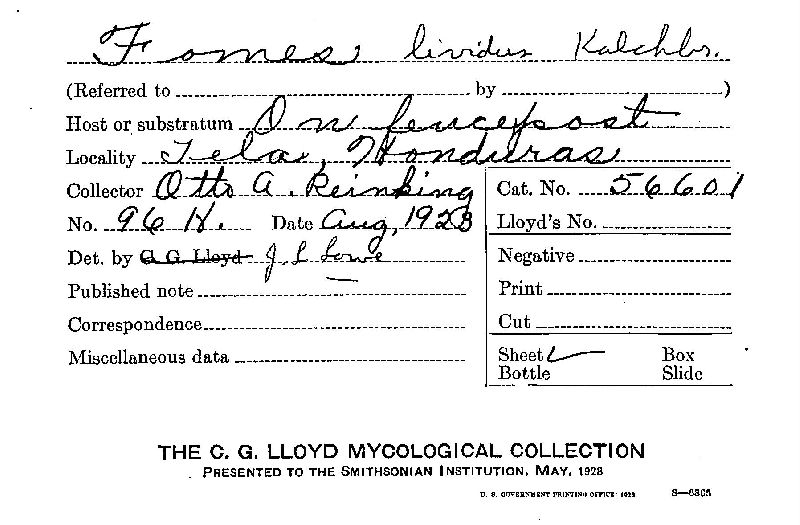 Fomes lividus Kalchbr.
(Referred to by )
Host or substratum On fencepost
Locality Tela, Honduras
Collector Otto A. Reinking
No. 96 H. Date Aug, 1923
Det. by C. G. Lloyd J. L. Lowe
Published note
Correspondence
Miscellaneous data
Cat. No. 56601
Lloyd's No.
Negative
Print
Cut
Sheet Box
Bottle Slide
THE C. G. LLOYD MYCOLOGICAL COLLECTION
PRESENTED TO THE SMITHSONIAN INSTITUTION, MAY, 1928
U. S. GOVERNMENT PRINTING OFFICE